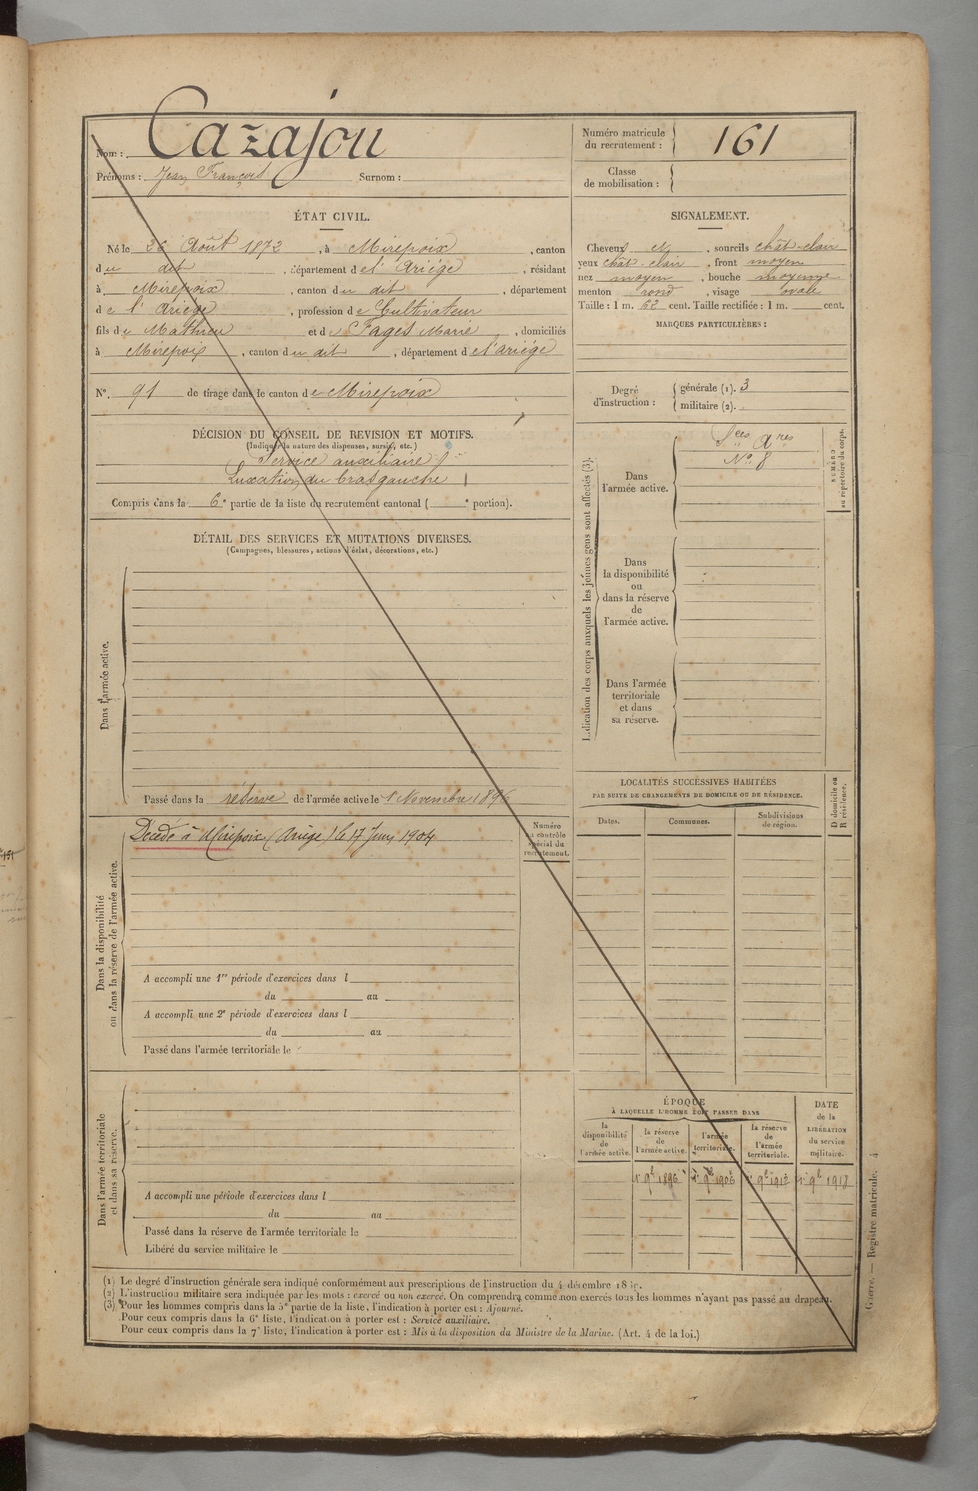 Nom : Cazajou
Prénoms : Jean François Surnom :
Numéro matricule du recrutement : 161
Classe de mobilisation :
ÉTAT CIVIL.
Né le 26 Août 1872, à Mirepoix, canton
du dit, département de l'Ariège, résidant
à Mirepoix, canton du dit, département
de l'Ariège, profession de Cultivateur
fils de Mathieu et de Pagès Marie, domiciliés
à Mirepoix, canton du dit, département de l'ariège
N°. 91 de tirage dans le canton de Mirepoix
DÉCISION DU CONSEIL DE REVISION ET MOTIFS.
(Indiquer la nature des dispenses, sursis, etc.)
Service auxiliaire
Luxation du bras gauche
Compris dans la 6e partie de la liste du recrutement cantonal ( e portion).
DÉTAIL DES SERVICES ET MUTATIONS DIVERSES.
(Campagnes, blessures, actions d'éclat, décorations, etc.)
Dans l'armée active.
Passé dans la réserve de l'armée active le 1 Novembre 1896
Dans la disponibilité
ou dans la réserve de l'armée active.
Décédé à Mirepoix (Ariège) le 17 Juin 1904
Numéro
au contrôle
spécial du
recrutement.
A accompli une 1re période d'exercices dans l
du au
A accompli une 2e période d'exercices dans l
du au
Passé dans l'armée territoriale le
Dans l'armée territoriale
et dans sa réserve.
A accompli une période d'exercices dans l
du au
Passé dans la réserve de l'armée territoriale le
Libéré du service militaire le
SIGNALEMENT.
Cheveux et, sourcils chât-clair
yeux chât-clair, front moyen
nez moyen, bouche moyenne
menton rond, visage ovale
Taille : 1 m. 62 cent. Taille rectifiée : 1 m. cent.
MARQUES PARTICULIÈRES :
Degré d'instruction :
générale (1). 3
militaire (2).
Indication des corps auxquels les jeunes gens sont affectés (3).
NUMÉRO
au répertoire du corps.
Dans
l'armée active.
Sces Ares
N° 8
Dans
la disponibilité
ou
dans la réserve
de
l'armée active.
Dans l'armée
territoriale
et dans
sa réserve.
LOCALITÉS SUCCESSIVES HABITÉES
PAR SUITE DE CHANGEMENTS DE DOMICILE OU DE RÉSIDENCE.
D domicile ou
R résidence.
Dates. Communes. Subdivisions de région.
ÉPOQUE
À LAQUELLE L'HOMME DOIT PASSER DANS
DATE
de la
LIBÉRATION
du service
militaire.
la disponibilité de l'armée active.
la réserve de l'armée active.
l'armée territoriale.
la réserve de l'armée territoriale.
1er 9b 1896 1er 9b 1906 1er 9b 1912 1er 9b 1918
(1) Le degré d'instruction générale sera indiqué conformément aux prescriptions de l'instruction du 4 décembre
(2) L'instruction militaire sera indiquée par les mots : exercé ou non exercé. On comprendra comme non exercés tous les hommes n'ayant pas passé au drapeau.
(3) Pour les hommes compris dans la 5e partie de la liste, l'indication à porter est : Ajourné.
Pour ceux compris dans la 6e liste, l'indication à porter est : Service auxiliaire.
Pour ceux compris dans la 7e liste, l'indication à porter est : Mis à la disposition du Ministre de la Marine. (Art. 4 de la loi.)
Guerre. — Registre matricule. 4